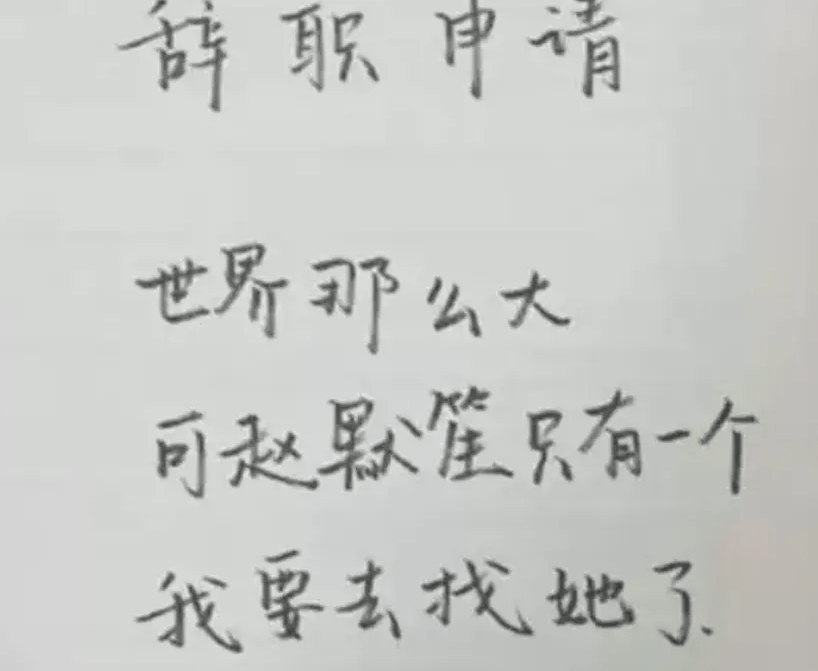 辞职申请
世界那么大
可赵默笙只有一个
我要去找她了.